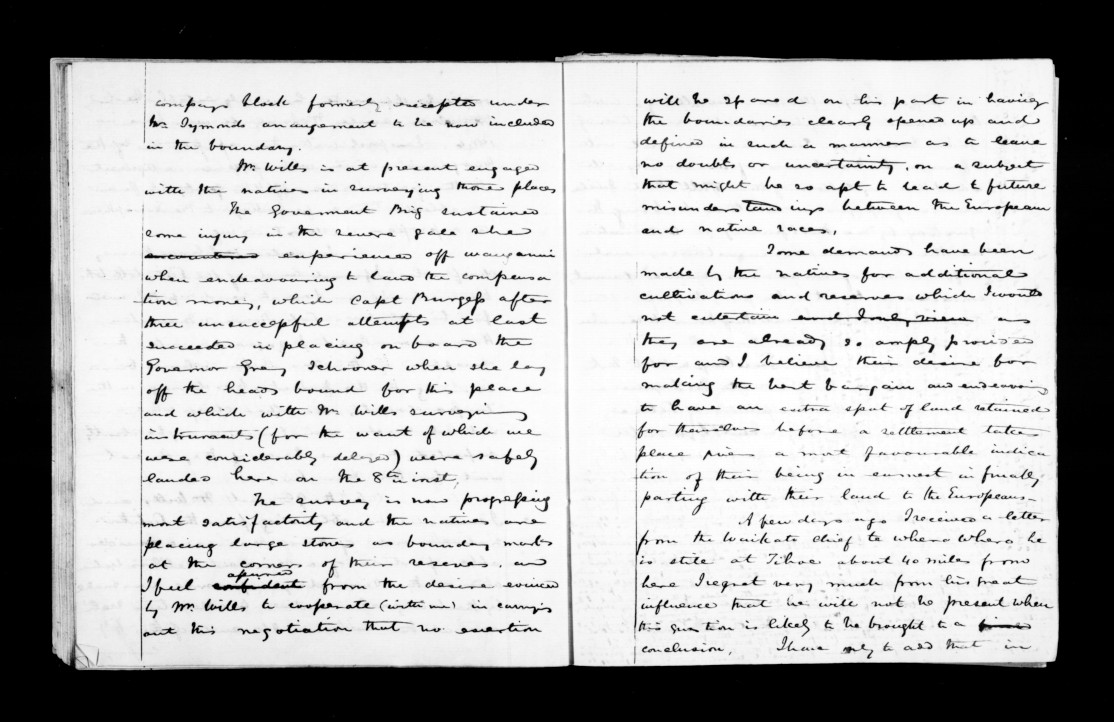 company's block formerly excepted under
Mr Symonds arrangement to be now included
in the boundary.
Mr Wills is at present engaged
with the natives in surveying those places
The Goverment Brig sustained
some injury in the severe gale she
encountered experienced off Wanganui
when endeavouring to land the compensa
tion money, which Capt Burgess after
three unsuccessful attempts at last
succeeded in placing on board the
Governor Grey Schooner when she lay
off the heads bound for this place
and which with Mr Wills surveying
instruments (for the want of which we
were considerably delayed) were safely
landed here on the 8th inst,
The survey is now progressing
most satisfactorily and the natives are
placing large stones as boundary marks
at the corners of their reserves. and
I feel confident assured from the desire evinced
by Mr. Wills to cooperate (with me) in carrying
out this negotiation that no exertion
will be spared on his part in having
the boundaries clearly opened up and
defined in such a manner as to leave
no doubts or uncertainty. on a subject
that might be so apt to lead to future
misunderstandings between the European
and native races.
Some demands have been
made by the natives for additional
cultivations and reserves which I would
not entertain and I only view as
they are already so amply provided
for and I believe their desire for
making the best bargain and endeavoring
to have an extra spot of land retained
for themselves before a settlement takes
place gives a most favourable indica
tion of their being in earnest in finally
parting with their land to the Europeans.
A few days ago I received a letter
from the Waikato chief te Whero Whero he
is still at Tihoe about 40 miles from
here I regret very much from his great
influence that he will not be present when
this question is likely to be brought to a
conclusion. I have only to add that in